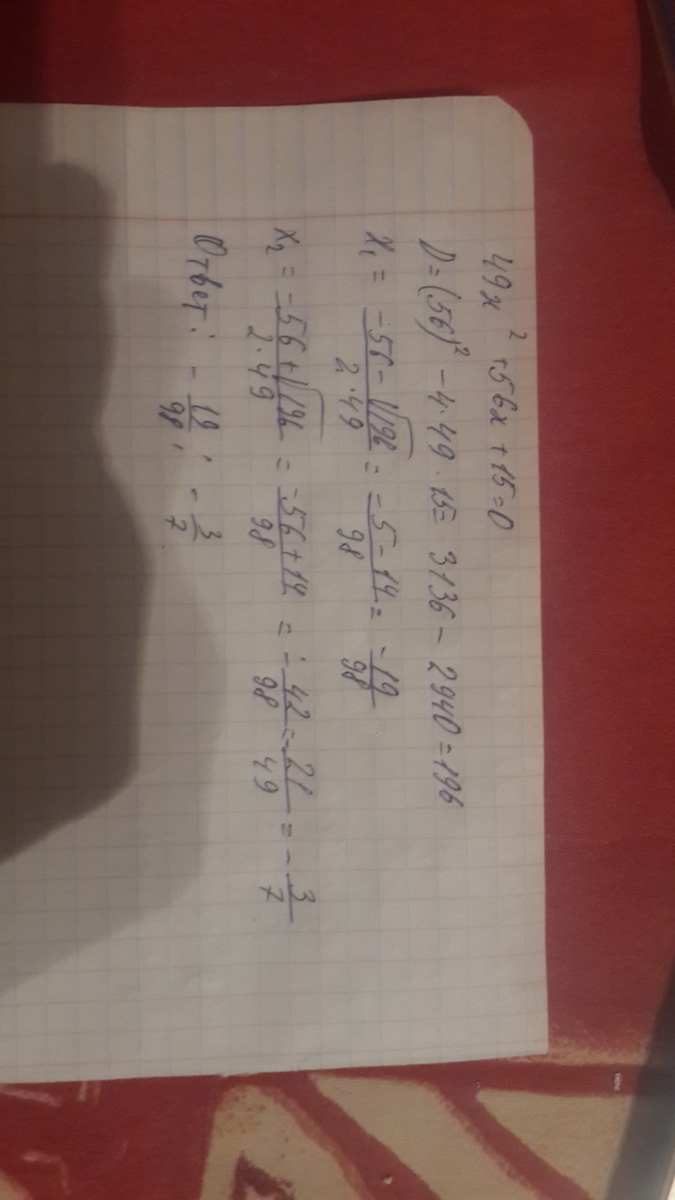 49x² + 56x + 15 = 0
D = (56)² - 4·49·15 = 3136 - 2940 = 196
x₁ = (-56 - √196)/(2·49) = (-5 - 14)/98 = -19/98
x₂ = (-56 + √196)/(2·49) = (-56 + 14)/98 = -42/98 = -21/49 = -3/7
Ответ: -19/98; -3/7.